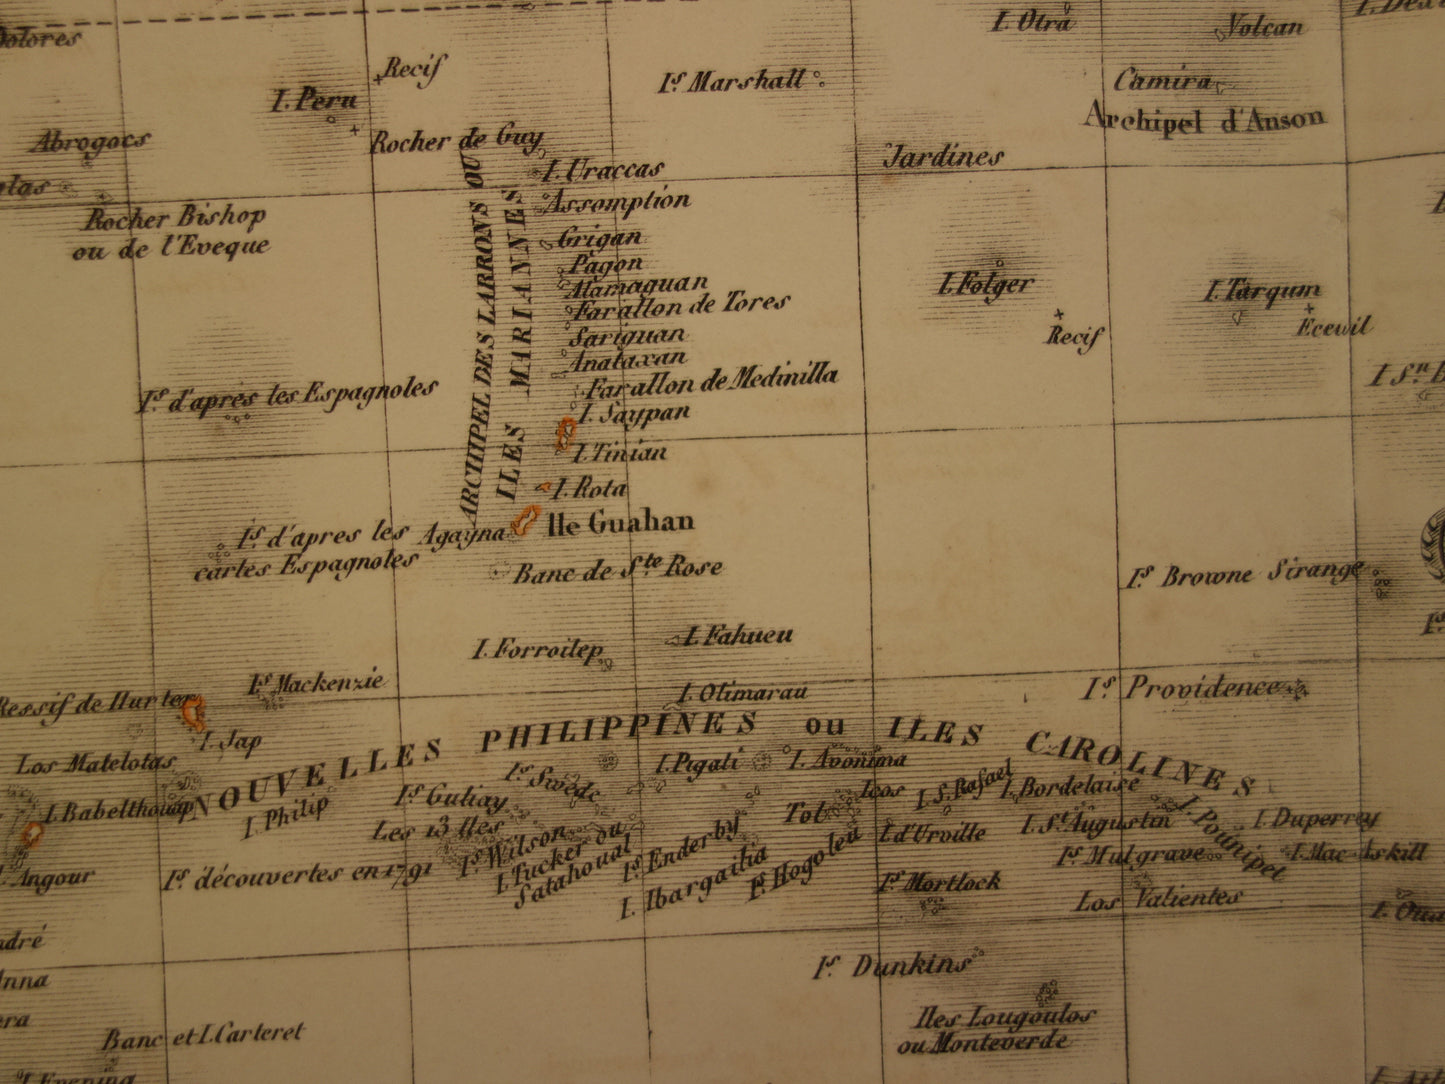 Dolores
Recif
I. Peru
Is Marshall
I. Otra
Volcan
Camira
Archipel d'Anson
Abrogocs
Rocher de Guy
Jardines
Rocher Bishop
ou de l'Eveque
ARCHIPEL DES LARRONS OU
ILES MARIANNES
I. Uraccas
Assomption
Grigan
Pagon
Alamaguan
Farallon de Tores
Sariguan
Anataxan
Farallon de Medinilla
I. Saypan
I. Tinian
I. Rota
Ile Guahan
Agagna
Banc de Ste Rose
I. Folger
Recif
I. Targum
Eceuil
Is d'aprés les Espagnoles
Is d'apres les
cartes Espagnoles
Is Browne Sirange
I. Forroilep
I. Fahueu
Ressif de Hurter
Is Mackenzie
I. Olimarau
Is Providence
I. Jap
NOUVELLES PHILIPPINES ou ILES CAROLINES
Los Matelotas
I. Babelthouap
I. Philip
Angour
Is Guliay
Is Swede
I. Pigali
I. Avonima
Les 13 Iles
Is Wilson
I. Tucker ou
Satahoual
Is découvertes en 1791
Is Enderby
I. Ibargailia
Is Hogoleu
Tol
Icos
I. S. Rafael
I. Bordelaise
I. d'Urville
I. St Augustin
I. Pounipet
I. Duperrey
Is Mulgrave
I. Mac-Askill
Is Mortlock
Los Valientes
Is Dunkins
Iles Lougoulos
ou Monteverde
Banc et I. Carteret
I. Evening